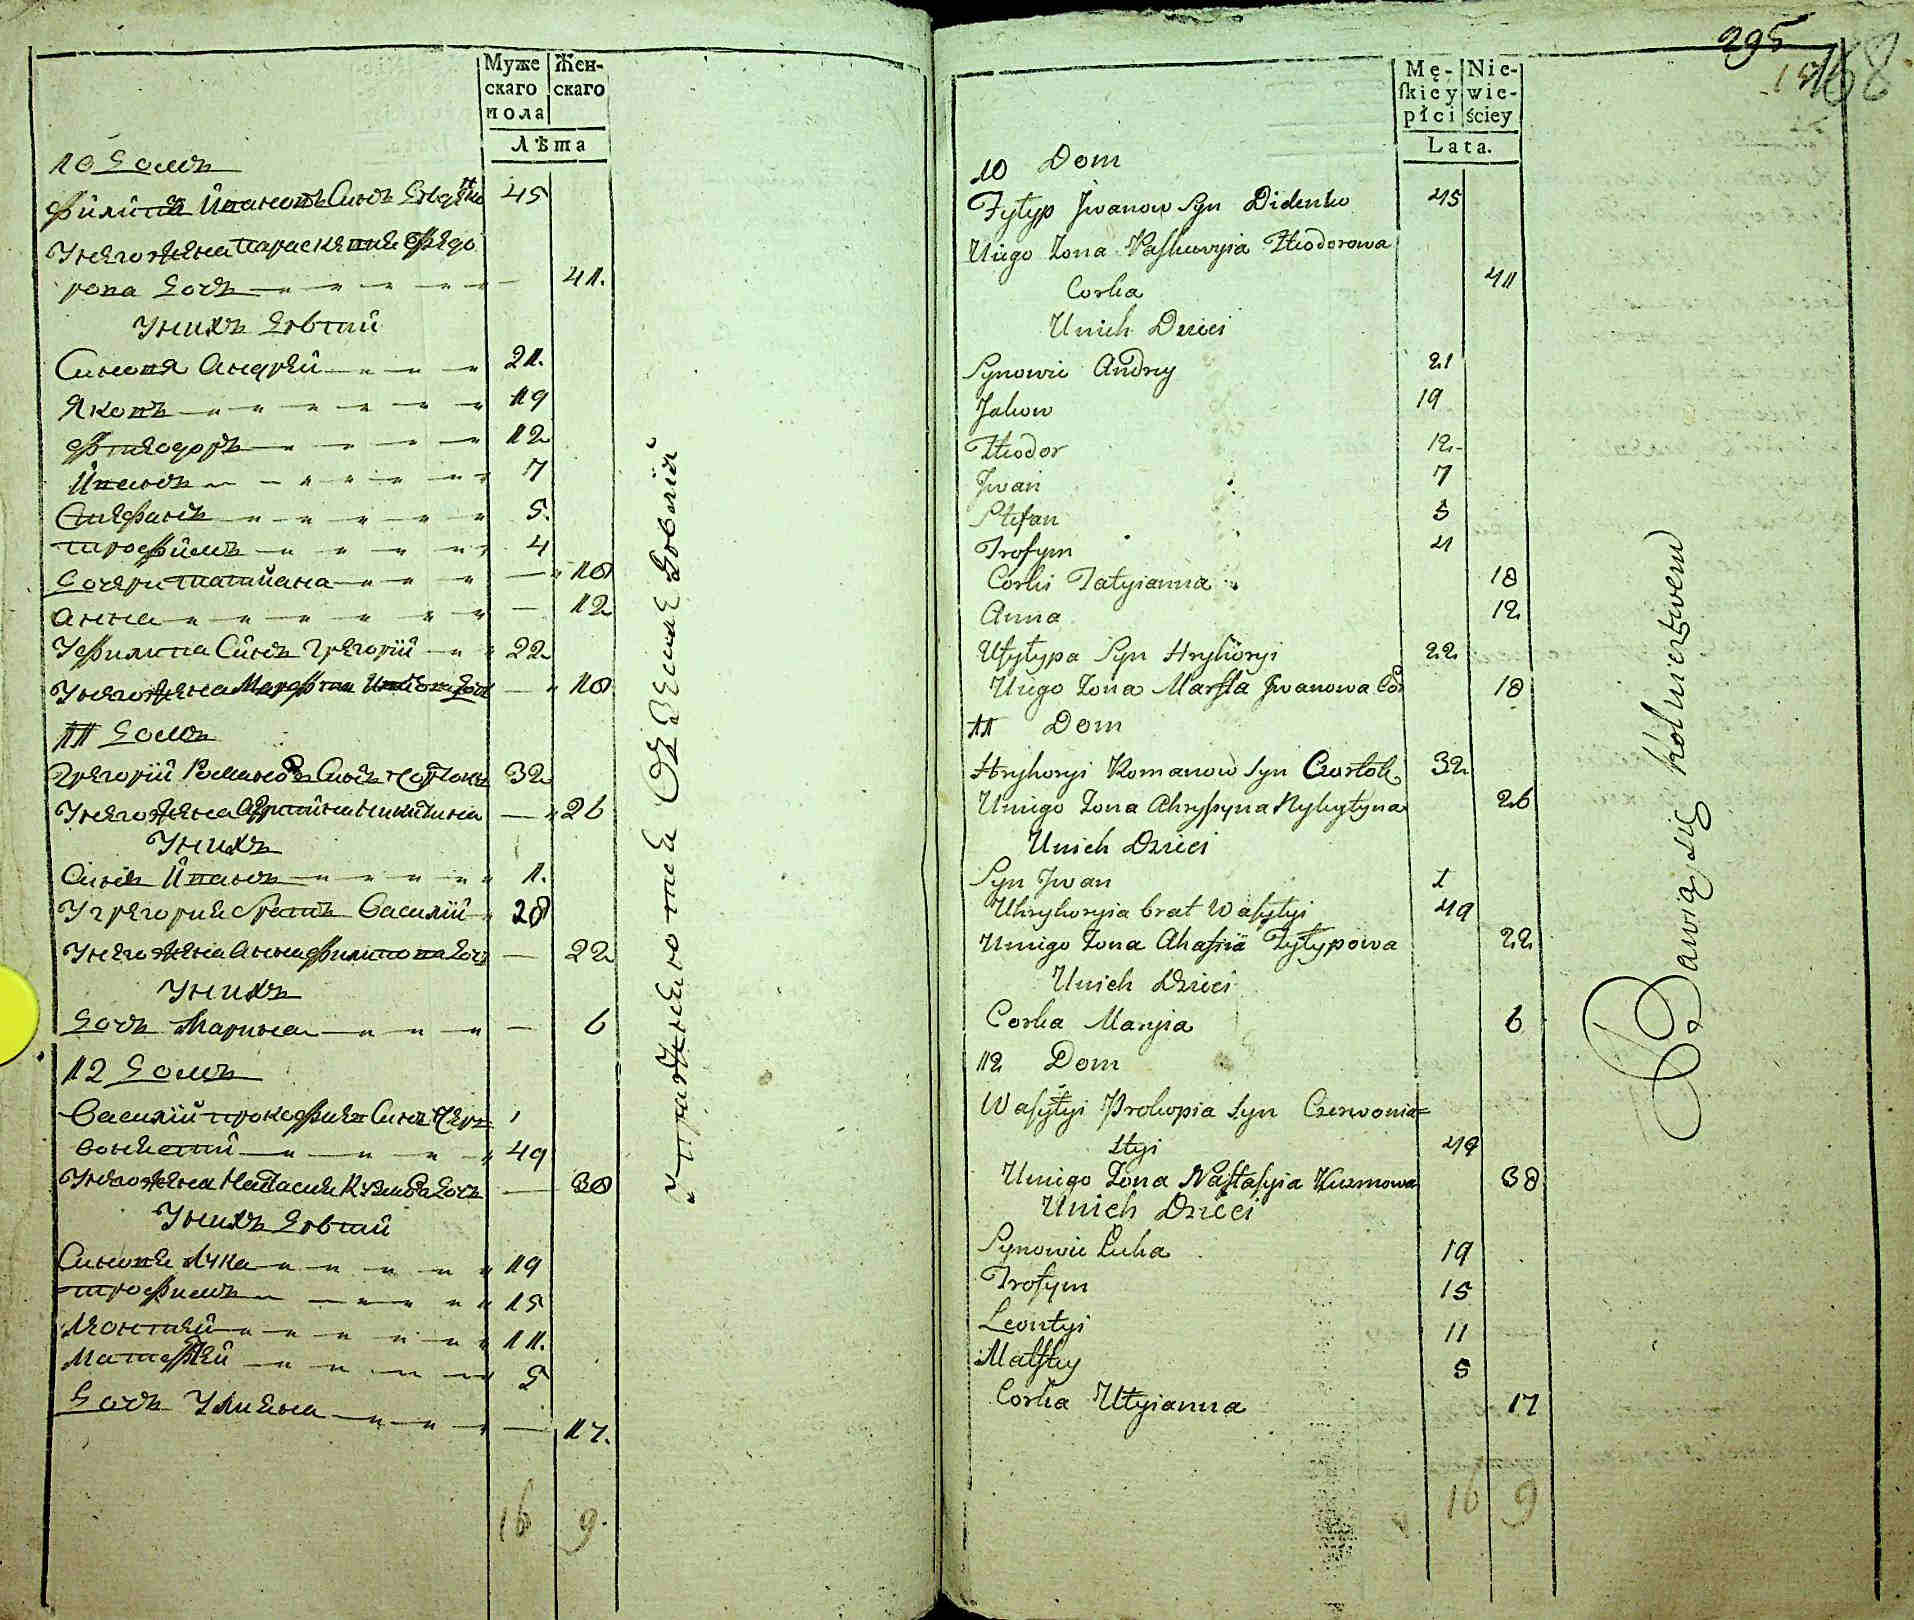 Муже Жен-
скаго скаго
пола
Лѣта
10 Домъ
Филипъ Ивановъ Синъ 45
Унего жена Параскевия Федо
рова Дочъ 41.
Унихъ Дѣтий
Синовя Андрей 21.
Яковъ 19
Фтеодоръ 12
Иванъ 7
Стефанъ 5.
Трофимъ 4
Дочери Татиана 18
Анна 12
У Филипа Синъ Григорий 22
Унего жена Марфта Иванова Дочъ 18
11 Домъ
Григорий Романовъ Синъ Чортокъ 32
Унего жена Христина Никитина 26
Унихъ
Синъ Иванъ 1.
У Григория братъ Василий 28
Унего жена Анна Филипова Дочъ 22
Унихъ
Дочъ Марина 6
12 Домъ
Василий Прокофиевъ Синъ Черво
49
Унего жена Настасия Кузмова Дочъ 38
Унихъ Дѣтий
Синовя Лука 19
Трофимъ 15
Леонтий 11.
Матфей 5
Дочъ Улияна 17.
16 9.
295
168
Mę- Nie-
skiey wie-
płci ściey
Lata.
10 Dom
Fyłyp Jwanow Syn Didenko 45
Uiego Zona Paskiewyia Theodorowa
Corka 41
Unich Dzieci
Synowie Andrey 21
Jakow 19
Theodor 12
Jwan 7
Stefan 5
Trofym 4
Corki Tatyianna 18
Anna 12
Ufyłypa Syn Hryhoryi 22
Uiego Zona Marfta Jwanowa Cor 18
11 Dom
Hryhoryi Romanow Syn Czortok 32
Uniego Zona Chrystyna Nykytyna 26
Unich Dzieci
Syn Jwan 1
Uhryhoryia brat Wasyłyi 49
Uniego Zona Ahafiia Fyłypowa 22
Unich Dzieci
Corka Maryia 6
12 Dom
Wasyłyi Prokopia Syn Czerwonia=
styi 49
Uniego Zona Nastasyia Kuzmowa 38
Unich Dzieci
Synowie Łuka 19
Trofym 15
Leontyi 11
Matfty 5
Corka Ulyianna 17
16 9
Bawią się Kołnierztwem